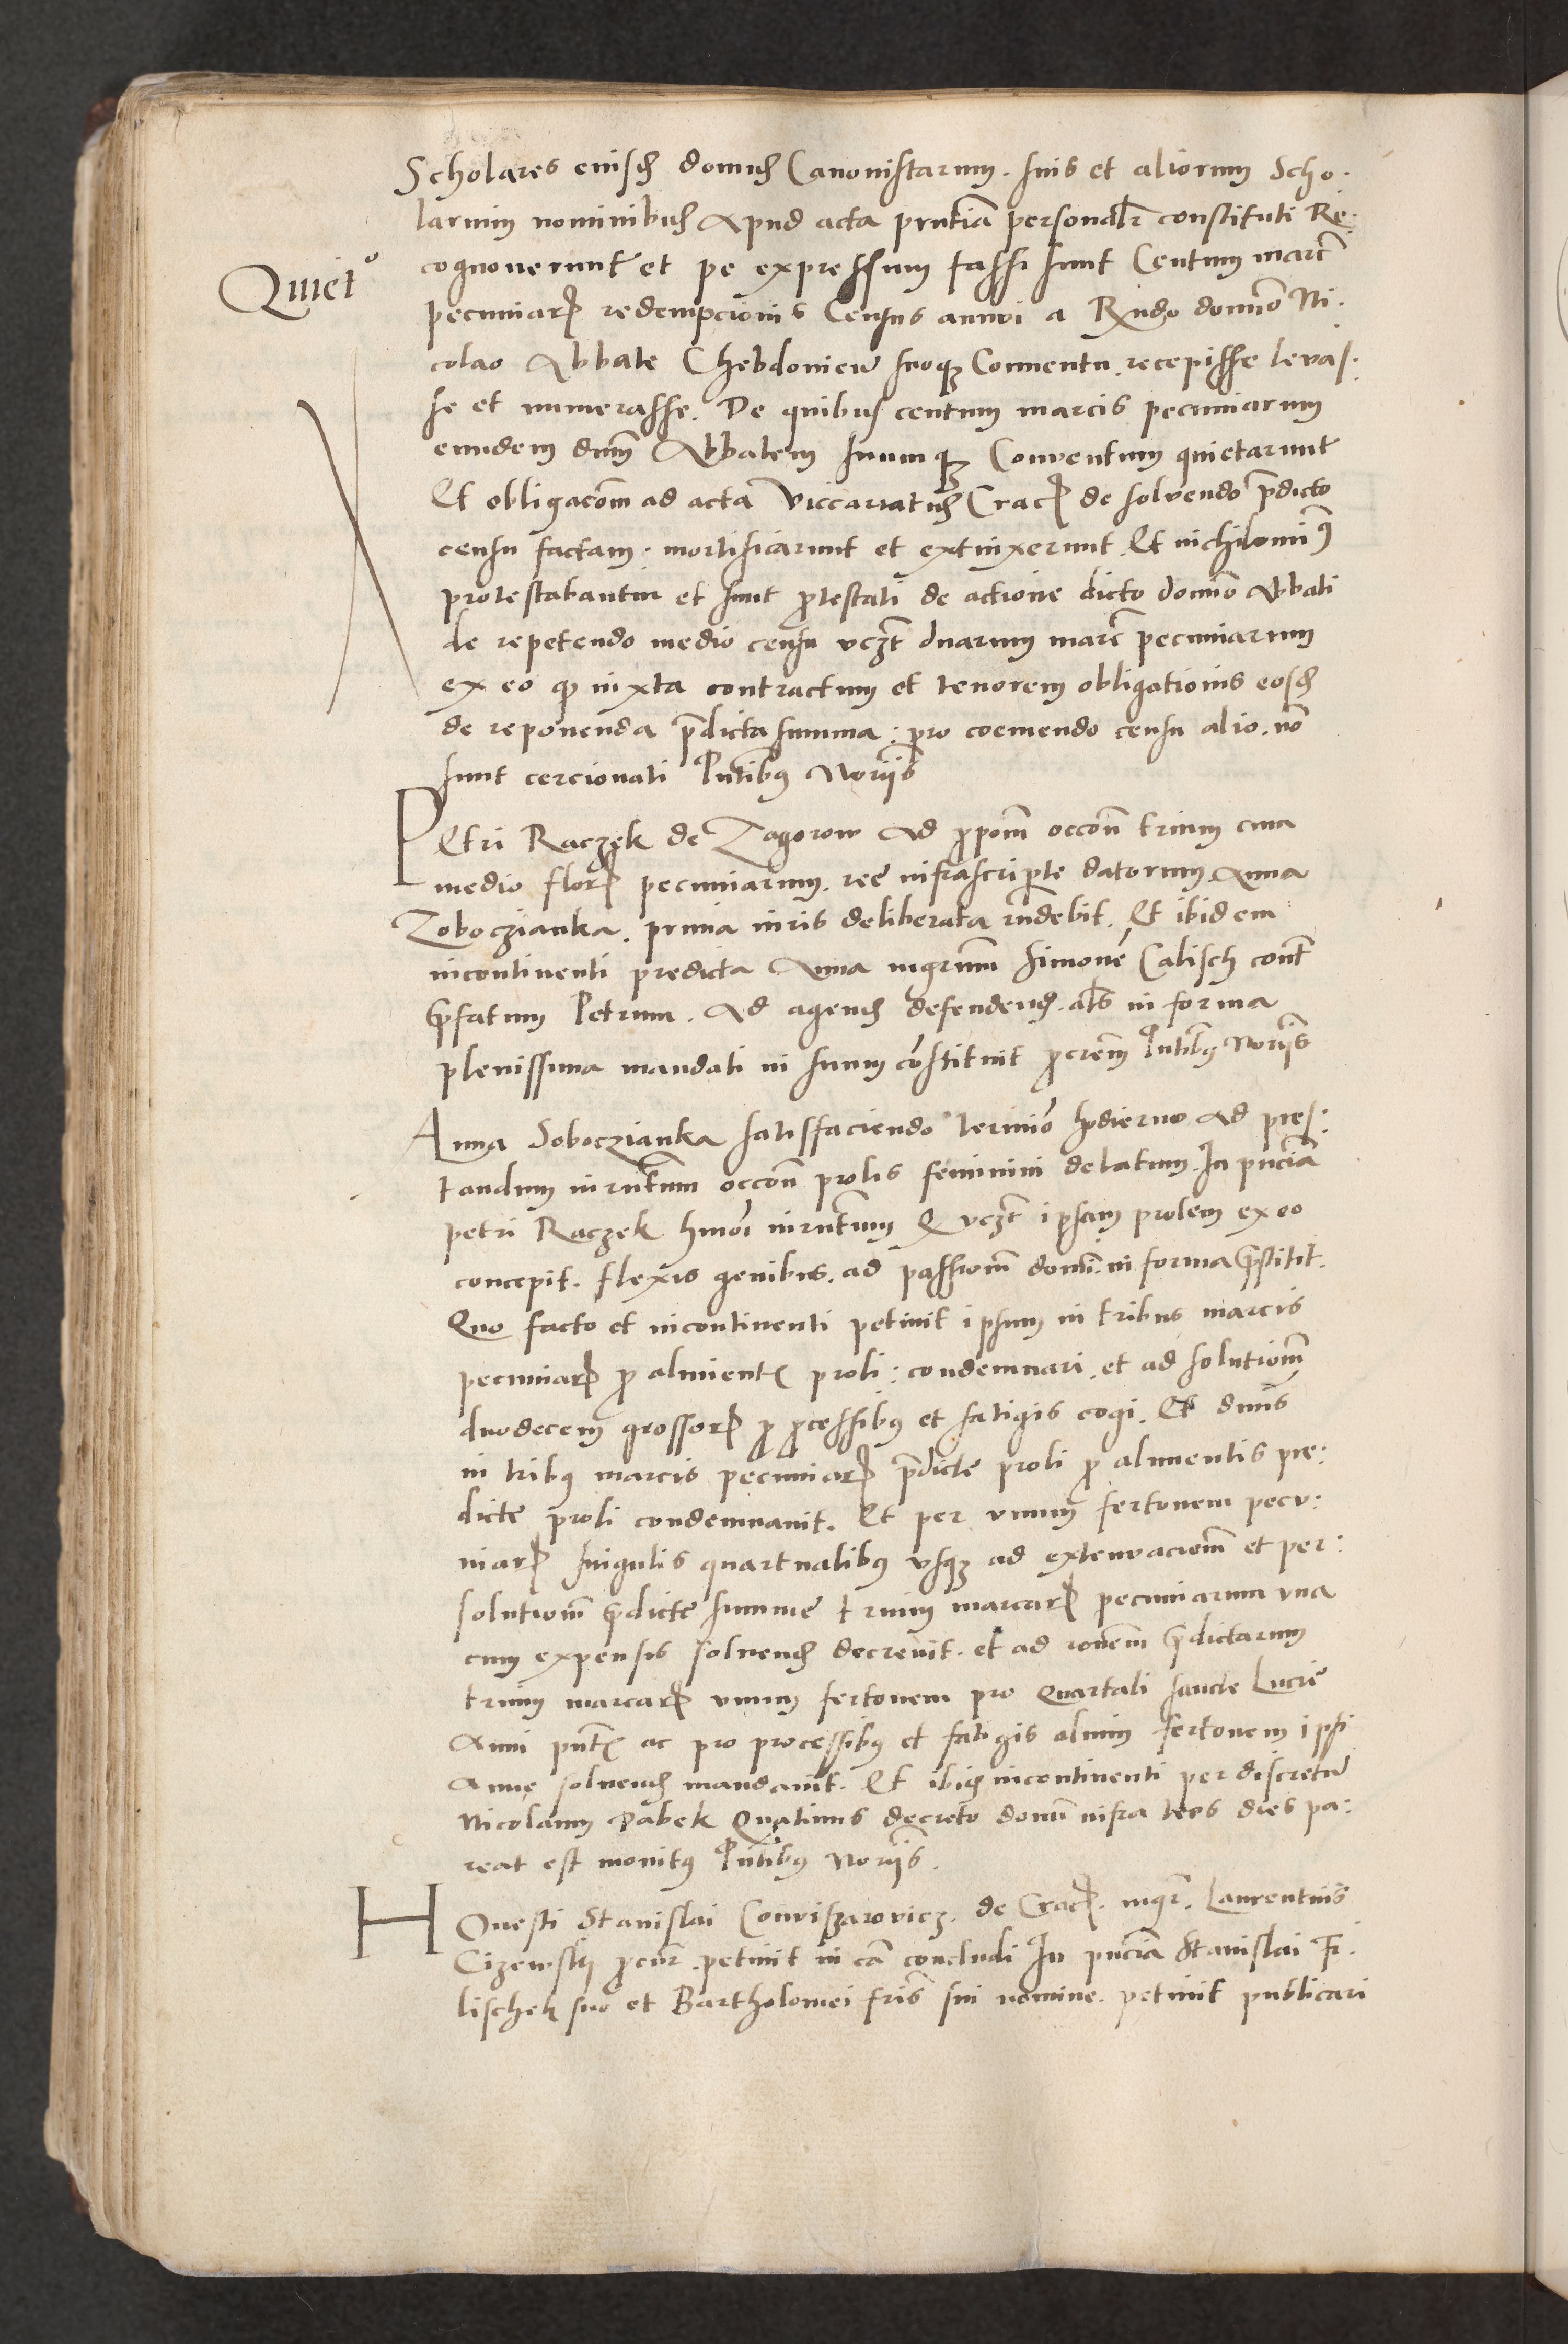 Scholares eiusdꝫ domus Canonistarum. suis et aliorum Scho.
larium nominibus Apud acta pn̄tia personalr̄ constituti Re.
Quiet°
cognoverunt et pe expressum fassi sunt Centum marc̄
pecuniarꝝ redempcionis Census annui a Rn̄do domino Ni.
colao Abbate Chebdoniew̄ suoqꝫ Conventu. recepisse levas.
se et numerasse. De quibus centum marcis pecuniarum
eundem dnm̄ Abbatem suumqꝫ Conventum quietarunt
Et obligacōm ad acta viccariatus Cracꝝ de solvendo p̄dicto
censu factam. mortificarunt et extinxerunt. Et nichilominꝰ
protestabantur et sunt ꝓtestati de actione dicto domino Abbati
de repetendo medio censu vczt̄ duarum marc̄ pecuniarum
ex eo ꝙ iuxta contractum et tenorem obligationis eosdꝫ
de reponenda p̄dicta summa: pro coemendo censu alio. nō
sunt cercionati Pn̄tibꝰ Norijs
PEtri Raczek de Zagorow Ad ꝓpom̄ occōn trium cum
medio florꝝ pecuniarum. ree infrascripte datorum Anna
Zoboczianka. prima iuris deliberata rn̄debit. Et ibidem
incontinenti predicta Anna mgrum̄ Simonē Calisch cont̄
p̄fatum Petrum. Ad agendꝫ defendendꝫ. als̄ in forma
plenissima mandati in suum cōstituit ꝓcrem̄ Pn̄tibꝰ Norijs
Anna Soboczianka satisffaciendo termiō hodierno Ad pres.
tandum iurn̄tum occōn prolis feminini delatum. In pn̄cia
petri Raczek hmōi iurn̄tum Q vczt̄ ipsam prolem ex eo
concepit. flexis genibus. ad passionm̄ domī. in forma p̄stitit.
Quo facto et incontinenti petiuit ipsum in tribus marcis
pecuniarꝝ ꝓ alimentꝭ proli: condemnari. et ad solutionm̄
duodecem grossorꝝ ꝓ ꝓcessibꝰ et fatigis cogi. Et dnūs
in tribꝰ marcis pecuniarꝝ p̄dicte proli ꝓ alimentis pre:
dicte proli condemnauit. Et per vnum fertonem pecu:
niarꝝ singulis quartualibꝰ vsqꝫ ad extenuacionm̄ et per:
solutionm̄ p̄dicte summe trium marcarꝝ pecuniarum vna
cum expensis soluendꝫ decreuit. et ad ronem̄ p̄dictarum
trium marcarꝝ vnum fertonem pro Quartali sancte Lucie
Anni pn̄tꝭ ac pro processibꝰ et fatigis alium fertonem ipsi
Anne soluendꝫ mandauit. Et ibidꝫ incontinenti per discretū
Nicolaum Dabek Quatinus decreto domī infra tres dies pa:
reat est monitꝰ Pn̄tibꝰ Norijs.
HOnesti Stanislai Conviszarovicz. de Cracꝝ. mgr̄. Laurentius
Cizewsky ꝓcur̄. petiuit in cā concludi In pn̄cia Stanislai Fi.
lischek suo et Bartholomei fris̄ sui nomine. petiuit publicari